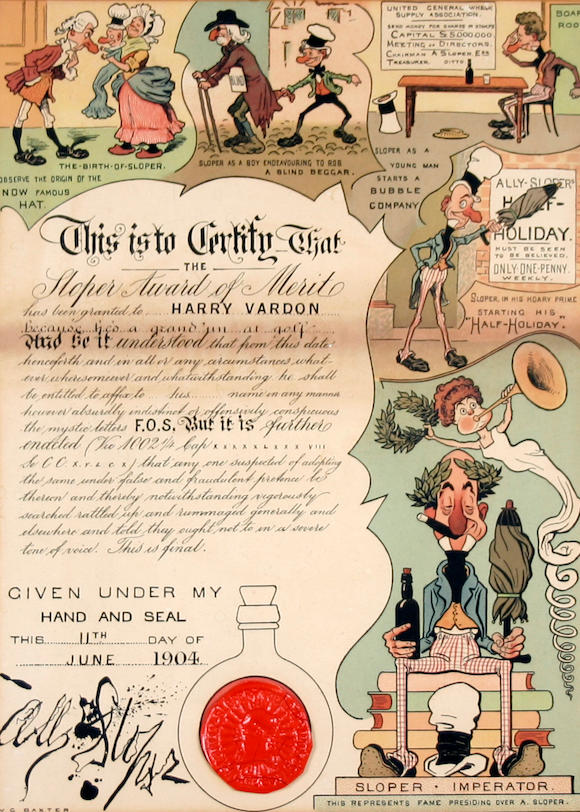 THE-BIRTH-OF-SLOPER.
OBSERVE THE ORIGIN OF THE
NOW FAMOUS
HAT.
BLIND
SLOPER AS A BOY ENDEAVOURING TO ROB
A BLIND BEGGAR.
UNITED GENERAL WHELK
SUPPLY ASSOCIATION.
SEND MONEY FOR SHARES IN STAMPS
CAPITAL £5.000.000
MEETING OF DIRECTORS.
CHAIRMAN A SLOPER, ESQ
TREASURER. DITTO
BOAR
ROO
SLOPER AS A
YOUNG MAN
STARTS A
BUBBLE
COMPANY
ALLY-SLOPER'S
HALF-
HOLIDAY.
MUST BE SEEN
TO BE BELIEVED.
ONLY-ONE-PENNY.
WEEKLY.
SLOPER, IN HIS HOARY PRIME
STARTING HIS
"HALF-HOLIDAY."
This is to Certify That
THE
Sloper Award of Merit
has been granted to HARRY VARDON
because he's a grand 'un at golf
And be it understood that from this date
henceforth and in all or any circumstances, what-
ever, wheresomever and whatwithstanding he shall
be entitled to affix to his name in any manner
however absurdly indistinct or offensively conspicuous
the mystic letters F.O.S. But it is further
enacted (Vic 1002¼ Cap x x x x L x x x VIII
that any one suspected of adopting
the same under false and fraudulent pretence be
thereon and thereby notwithstanding vigorously
searched rattled up and rummaged generally and
elsewhere and told they ought not to in a severe
tone of voice. This is final.
GIVEN UNDER MY
HAND AND SEAL
THIS 11TH DAY OF
JUNE 1904
Ally Sloper
W G BAXTER
SLOPER · IMPERATOR.
THIS REPRESENTS FAME PRESIDING OVER A. SLOPER.